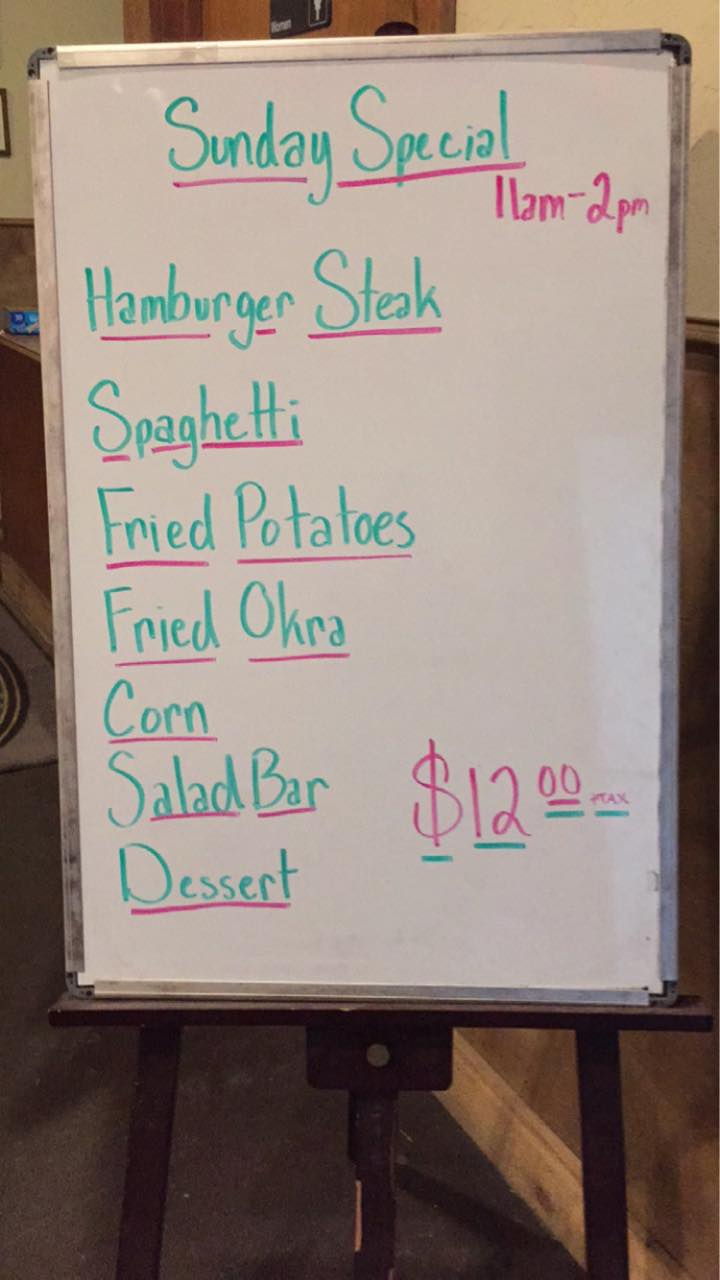 Women
Sunday Special
11am-2pm
Hamburger Steak
Spaghetti
Fried Potatoes
Fried Okra
Corn
Salad Bar
$12.00 +TAX
Dessert